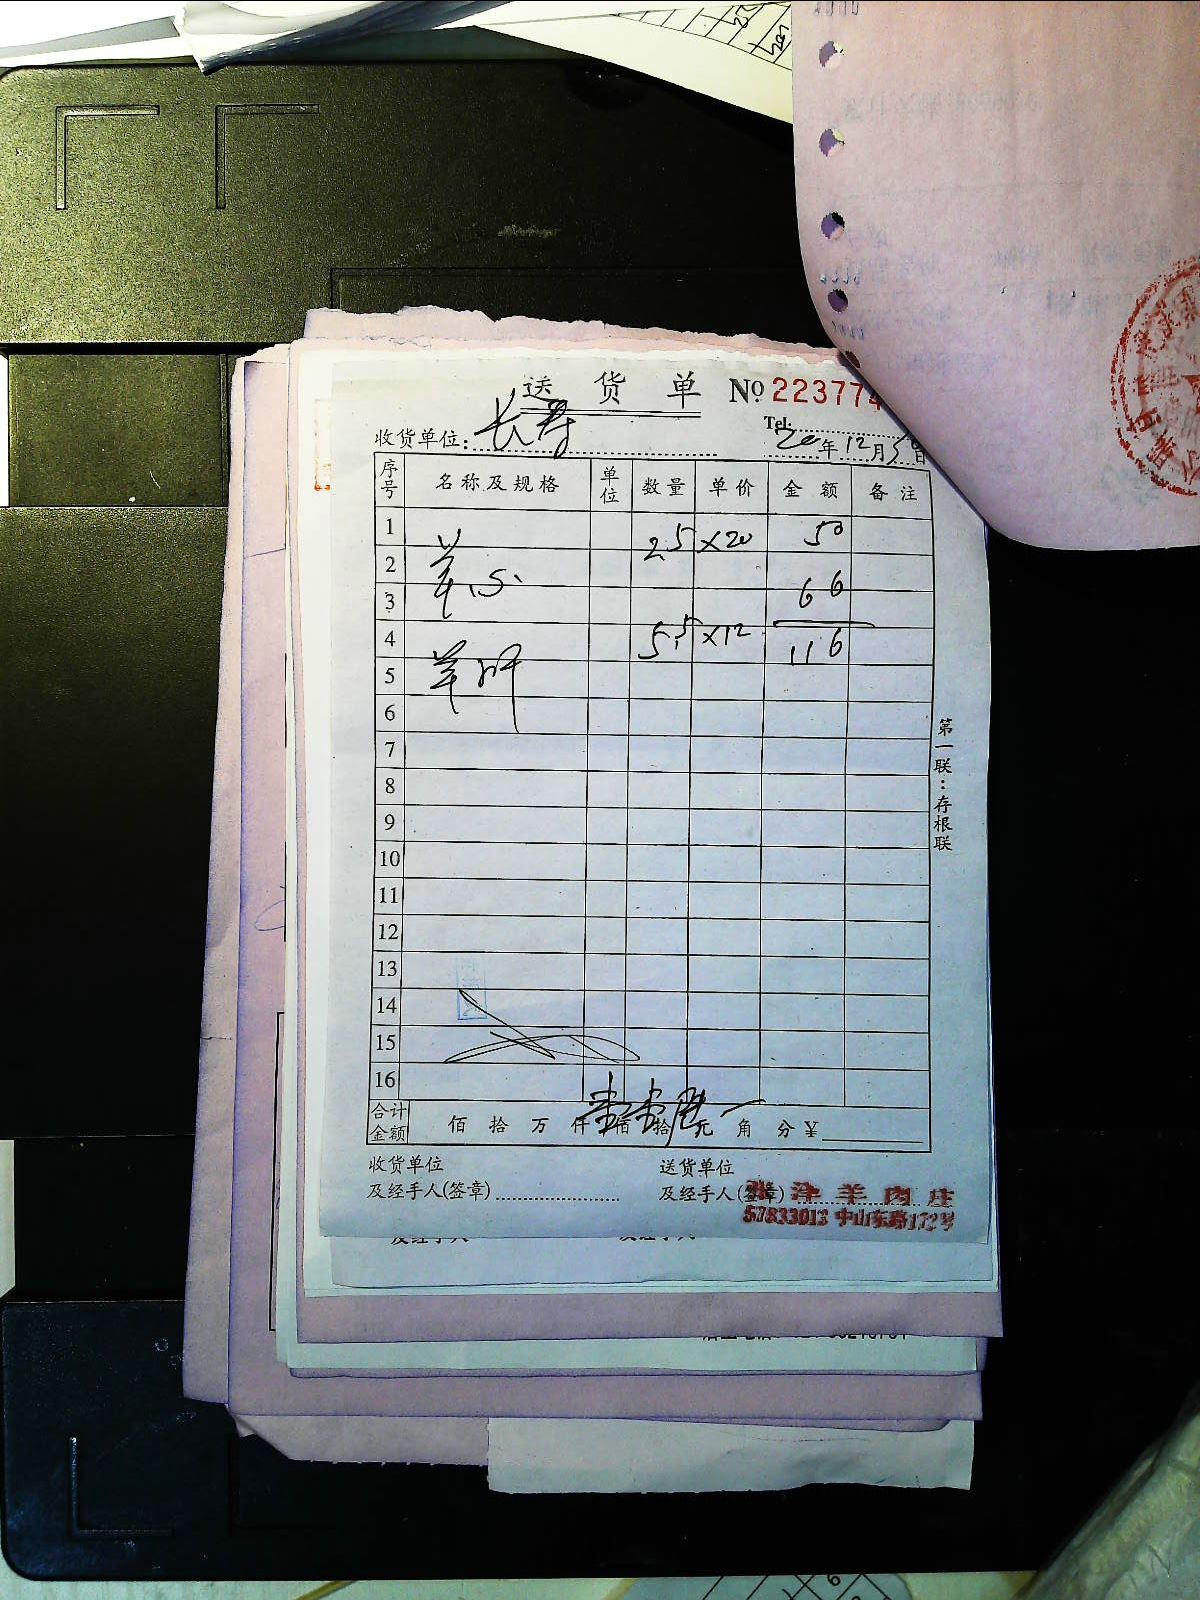 送货单 № 223774
Tel.
收货单位: 长寿 20年12月5日
序号 名称及规格 单位 数量 单价 金额 备注
1 2.5 ×20 50
2 羊心
3 66
4 5.5 ×12 116
5 羊肝
6
7
8
9
10
11
12
13
14
15
16
合计金额 佰 拾 万 仟 佰 拾 元 角 分 ¥
收货单位 送货单位
及经手人(签章) 及经手人(签章)
津羊肉庄
57833013 中山东路172号
第一联:存根联
及经手人